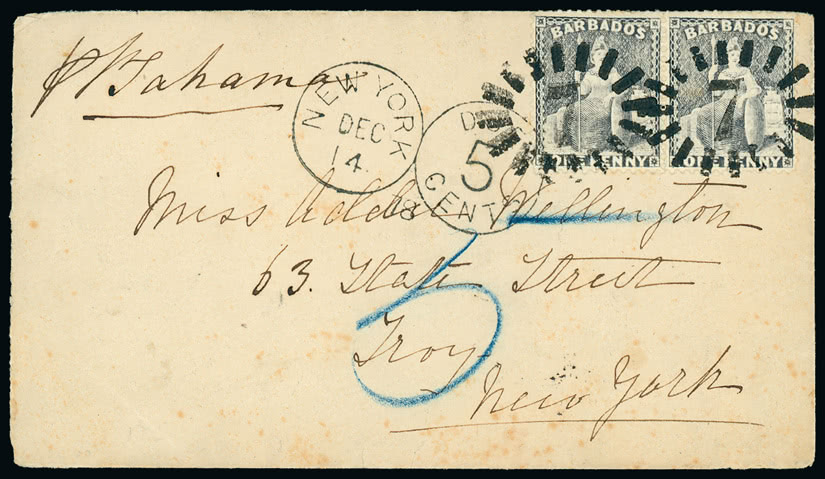 BARBADOS
BARBADOS
7
7
ONE PENNY
ONE PENNY
p Bahama
NEW YORK
DEC
14
5
CENT
Miss Addie Wellington
63. State Street
Troy
New York
5